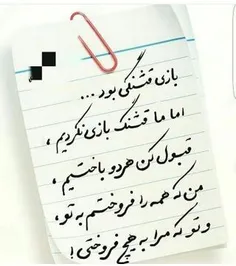 بازی قشنگی بود ...
اما ما قشنگ بازی نکردیم ،
قبول کن هردو باختیم ،
من که همه را فروختم به تو ،
و تو که مرا به هیچ فروختی !